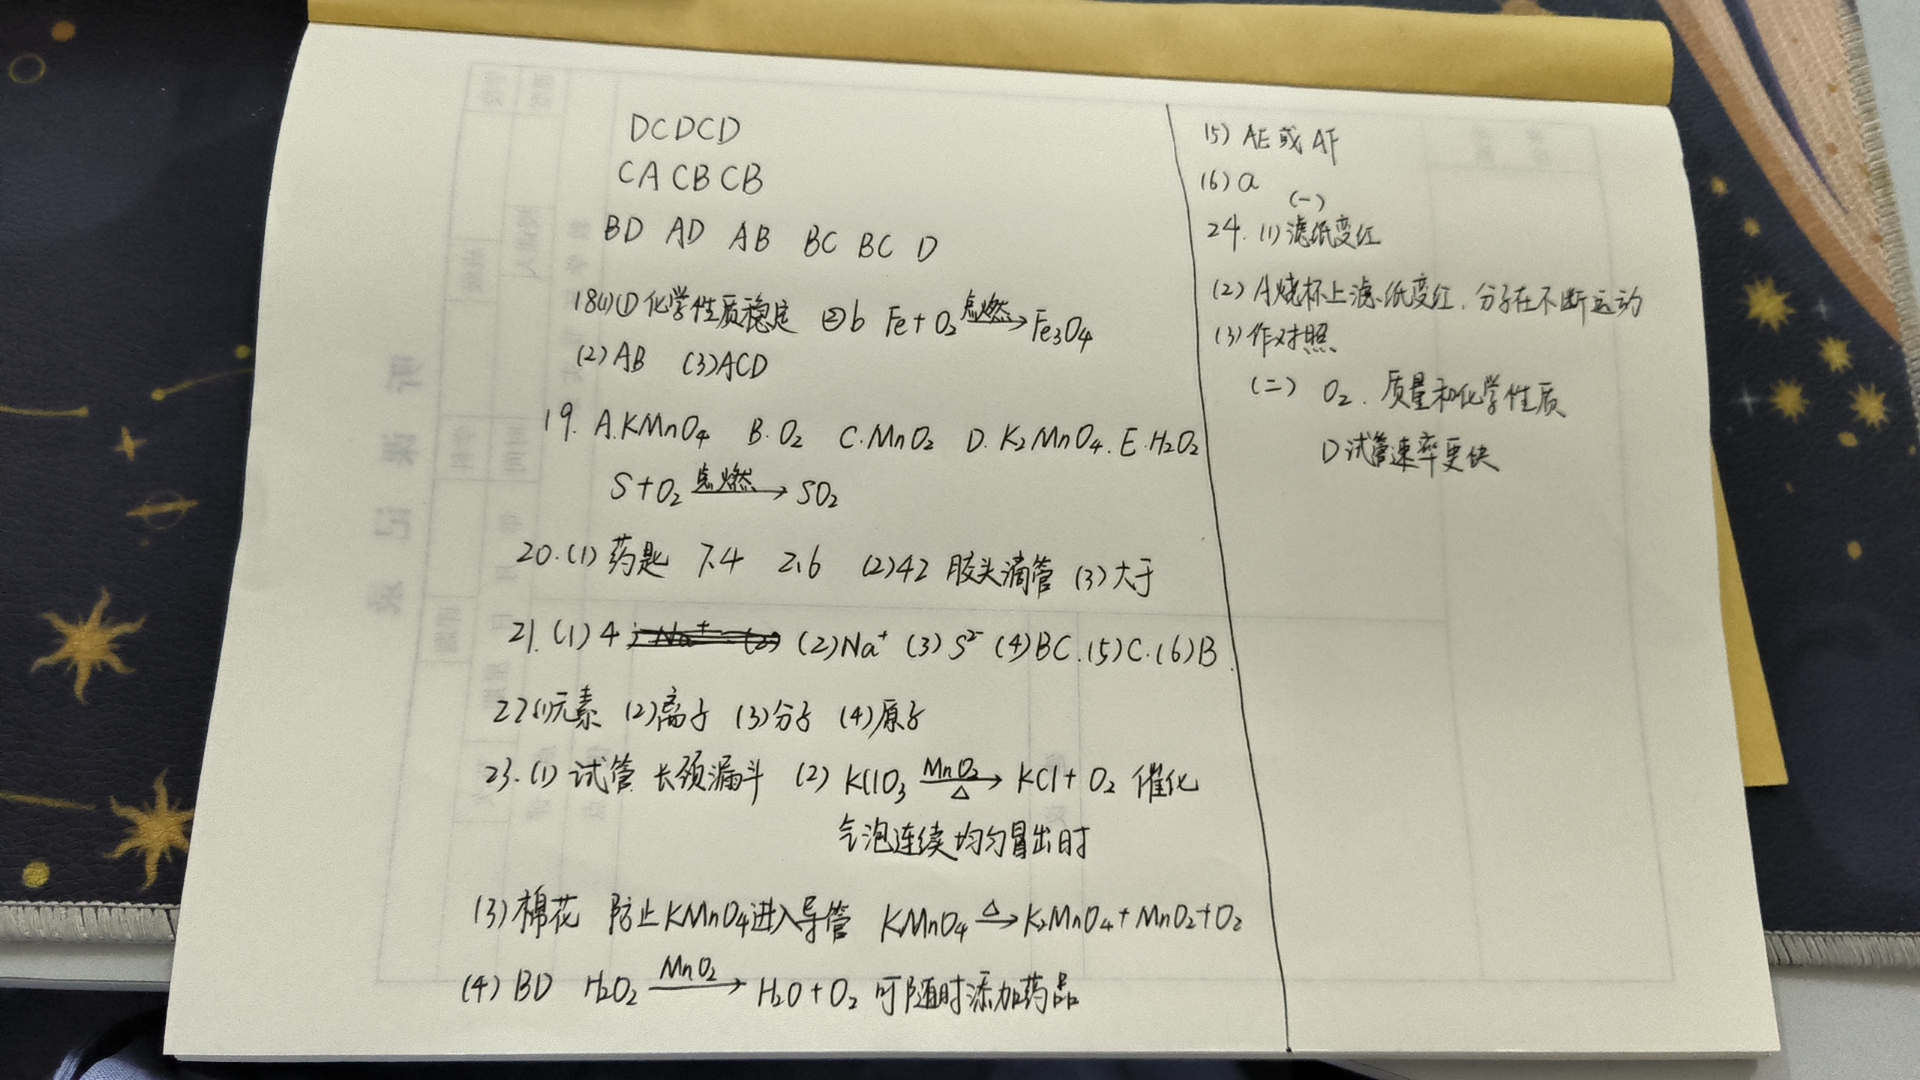 DCDCD
CACBCB
BD AD AB BC BC D
18(1)①化学性质稳定 ②b Fe+O₂ 点燃→ Fe₃O₄
(2)AB (3)ACD
19. A.KMnO₄ B.O₂ C.MnO₂ D.K₂MnO₄. E.H₂O₂
S+O₂ 点燃→ SO₂
20.(1)药匙 7.4 2.6 (2)42 胶头滴管 (3)大于
21.(1)4 (2)Na⁺ (3)S²⁻ (4)BC.(5)C.(6)B.
22(1)元素 (2)离子 (3)分子 (4)原子
23.(1)试管 长颈漏斗 (2) KClO₃ MnO₂/△→ KCl+O₂ 催化
气泡连续均匀冒出时
(3)棉花 防止KMnO₄进入导管 KMnO₄ △→ K₂MnO₄+MnO₂+O₂
(4) BD H₂O₂ MnO₂→ H₂O+O₂ 可随时添加药品
(5) AE或AF
(6) a
(一)
24.(1)滤纸变红
(2)A烧杯上滤纸变红.分子在不断运动
(3)作对照
(二) O₂. 质量和化学性质
D试管速率更快